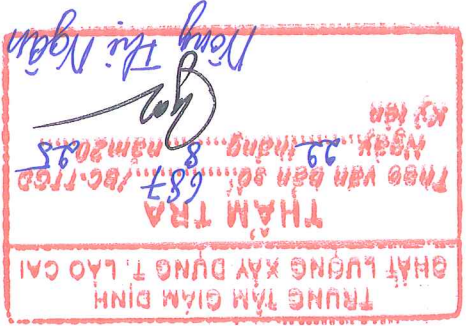 TRUNG TÂM GIÁM ĐỊNH
CHẤT LƯỢNG XÂY DỰNG T. LÀO CAI
THẨM TRA
Theo văn bản số: 687 /BC-TTGĐ
Ngày 29 tháng 8 năm 2025
Ký tên
Nông Thị Ngân